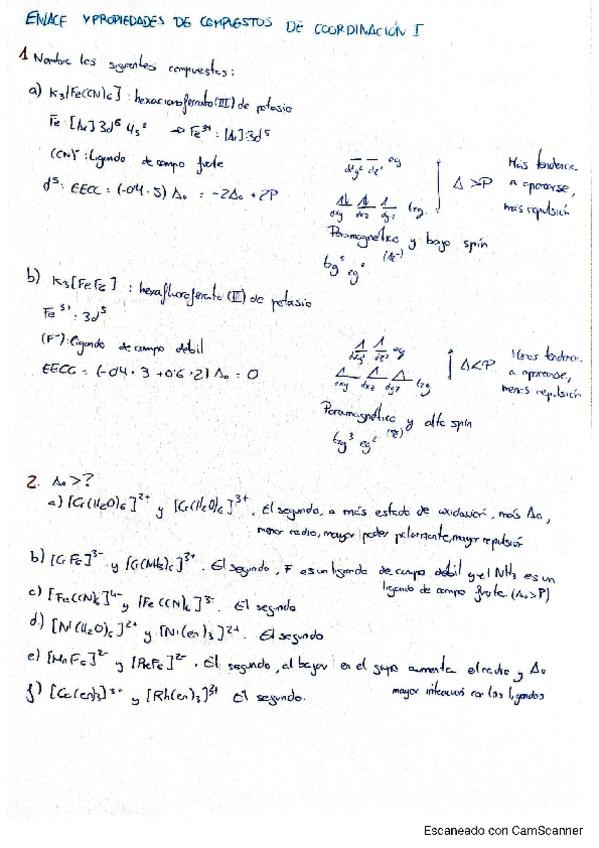 ENLACE Y PROPIEDADES DE COMPUESTOS DE COORDINACIÓN I
1 Nombre los siguientes compuestos:
a) K3[Fe(CN)6] : hexacianoferrato (III) de potasio
Fe: [Ar] 3d⁶ 4s² → Fe³⁺: [Ar] 3d⁵
(CN)⁻: Ligando de campo fuerte
d⁵: EECC = (-0'4 · 5) Δ₀ = -2Δ₀ + 2P
eg
t2g
Δ > P
Más tendencia
a aparearse,
más repulsión
Paramagnético y bajo spin
t2g⁵ eg⁰
b) K3[FeF6] : hexafluoroferrato (III) de potasio
Fe³⁺: 3d⁵
(F⁻): ligando de campo débil
EECC = (-0'4 · 3 + 0'6 · 2) Δ₀ = 0
eg
t2g
Δ < P
Menos tendencia
a aparearse,
menos repulsión
Paramagnético y alto spin
t2g³ eg²
2. Δ₀ > ?
a) [Cr(H2O)6]²⁺ y [Cr(H2O)6]³⁺. El segundo, a más estado de oxidación, más Δ₀,
menor radio, mayor poder polarizante, mayor repulsión
b) [CrF6]³⁻ y [Cr(NH3)6]³⁺. El segundo, F es un ligando de campo débil y el NH3 es un
ligando de campo fuerte (Δ₀ > P)
c) [Fe(CN)6]⁴⁻ y [Fe(CN)6]³⁻. El segundo
d) [Ni(H2O)6]²⁺ y [Ni(en)3]²⁺. El segundo
e) [MnF6]²⁻ y [ReF6]²⁻. El segundo, al bajar en el grupo aumenta el radio y Δ₀
mayor interacción con los ligandos
f) [Co(en)3]³⁺ y [Rh(en)3]³⁺ El segundo.
Escaneado con CamScanner